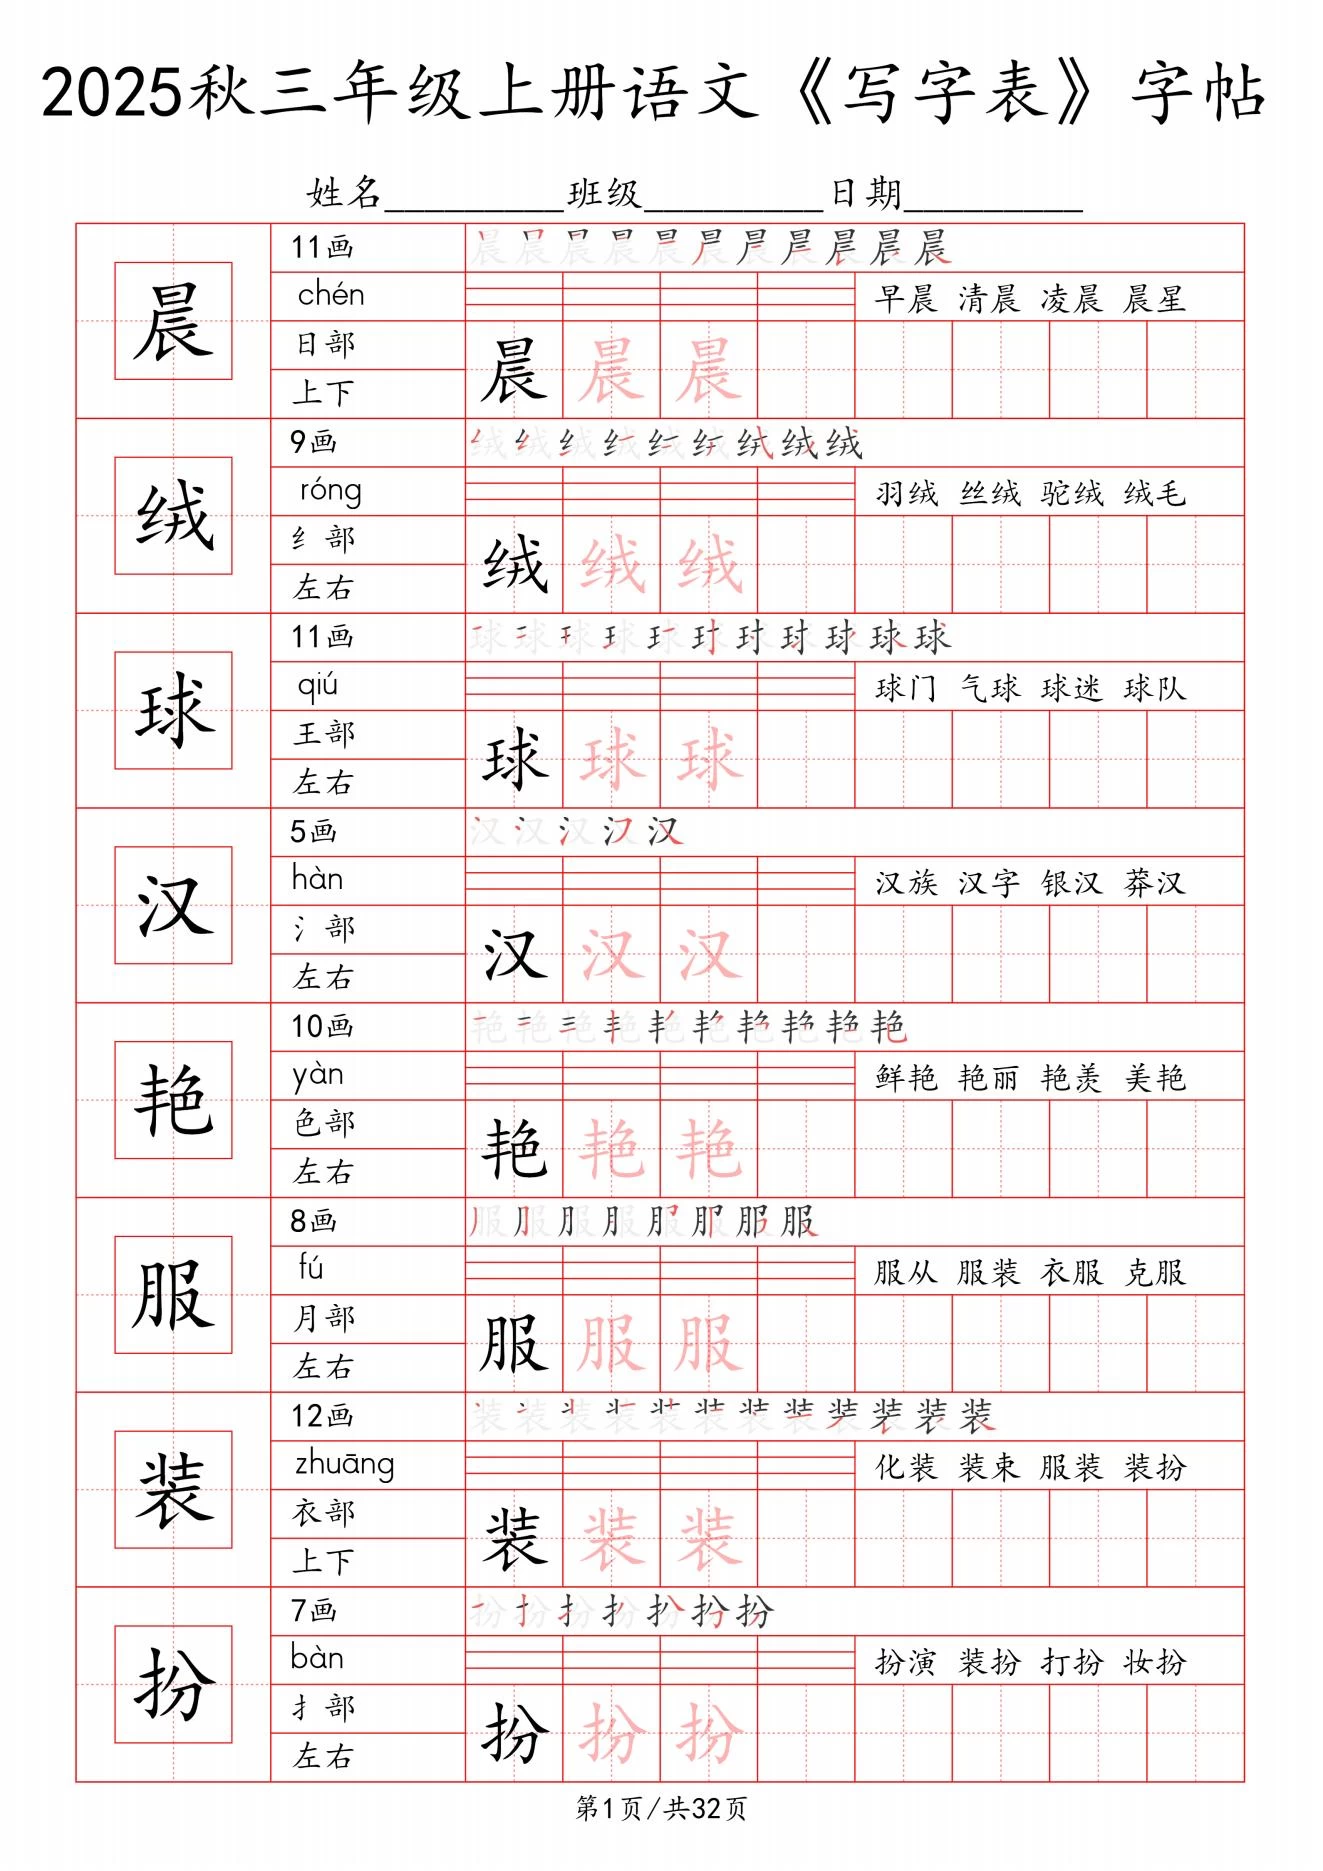 2025秋三年级上册语文《写字表》字帖
姓名_________班级_________日期_________
晨
11画
晨 晨 晨 晨 晨 晨 晨 晨 晨 晨 晨
chén
早晨 清晨 凌晨 晨星
日部
上下
晨 晨 晨
绒
9画
绒 绒 绒 绒 绒 绒 绒 绒 绒
róng
羽绒 丝绒 驼绒 绒毛
纟部
左右
绒 绒 绒
球
11画
球 球 球 球 球 球 球 球 球 球 球
qiú
球门 气球 球迷 球队
王部
左右
球 球 球
汉
5画
汉 汉 汉 汉 汉
hàn
汉族 汉字 银汉 莽汉
氵部
左右
汉 汉 汉
艳
10画
艳 艳 艳 艳 艳 艳 艳 艳 艳 艳
yàn
鲜艳 艳丽 艳羡 美艳
色部
左右
艳 艳 艳
服
8画
服 服 服 服 服 服 服 服
fú
服从 服装 衣服 克服
月部
左右
服 服 服
装
12画
装 装 装 装 装 装 装 装 装 装 装 装
zhuāng
化装 装束 服装 装扮
衣部
上下
装 装 装
扮
7画
扮 扮 扮 扮 扮 扮 扮
bàn
扮演 装扮 打扮 妆扮
扌部
左右
扮 扮 扮
第1页/共32页